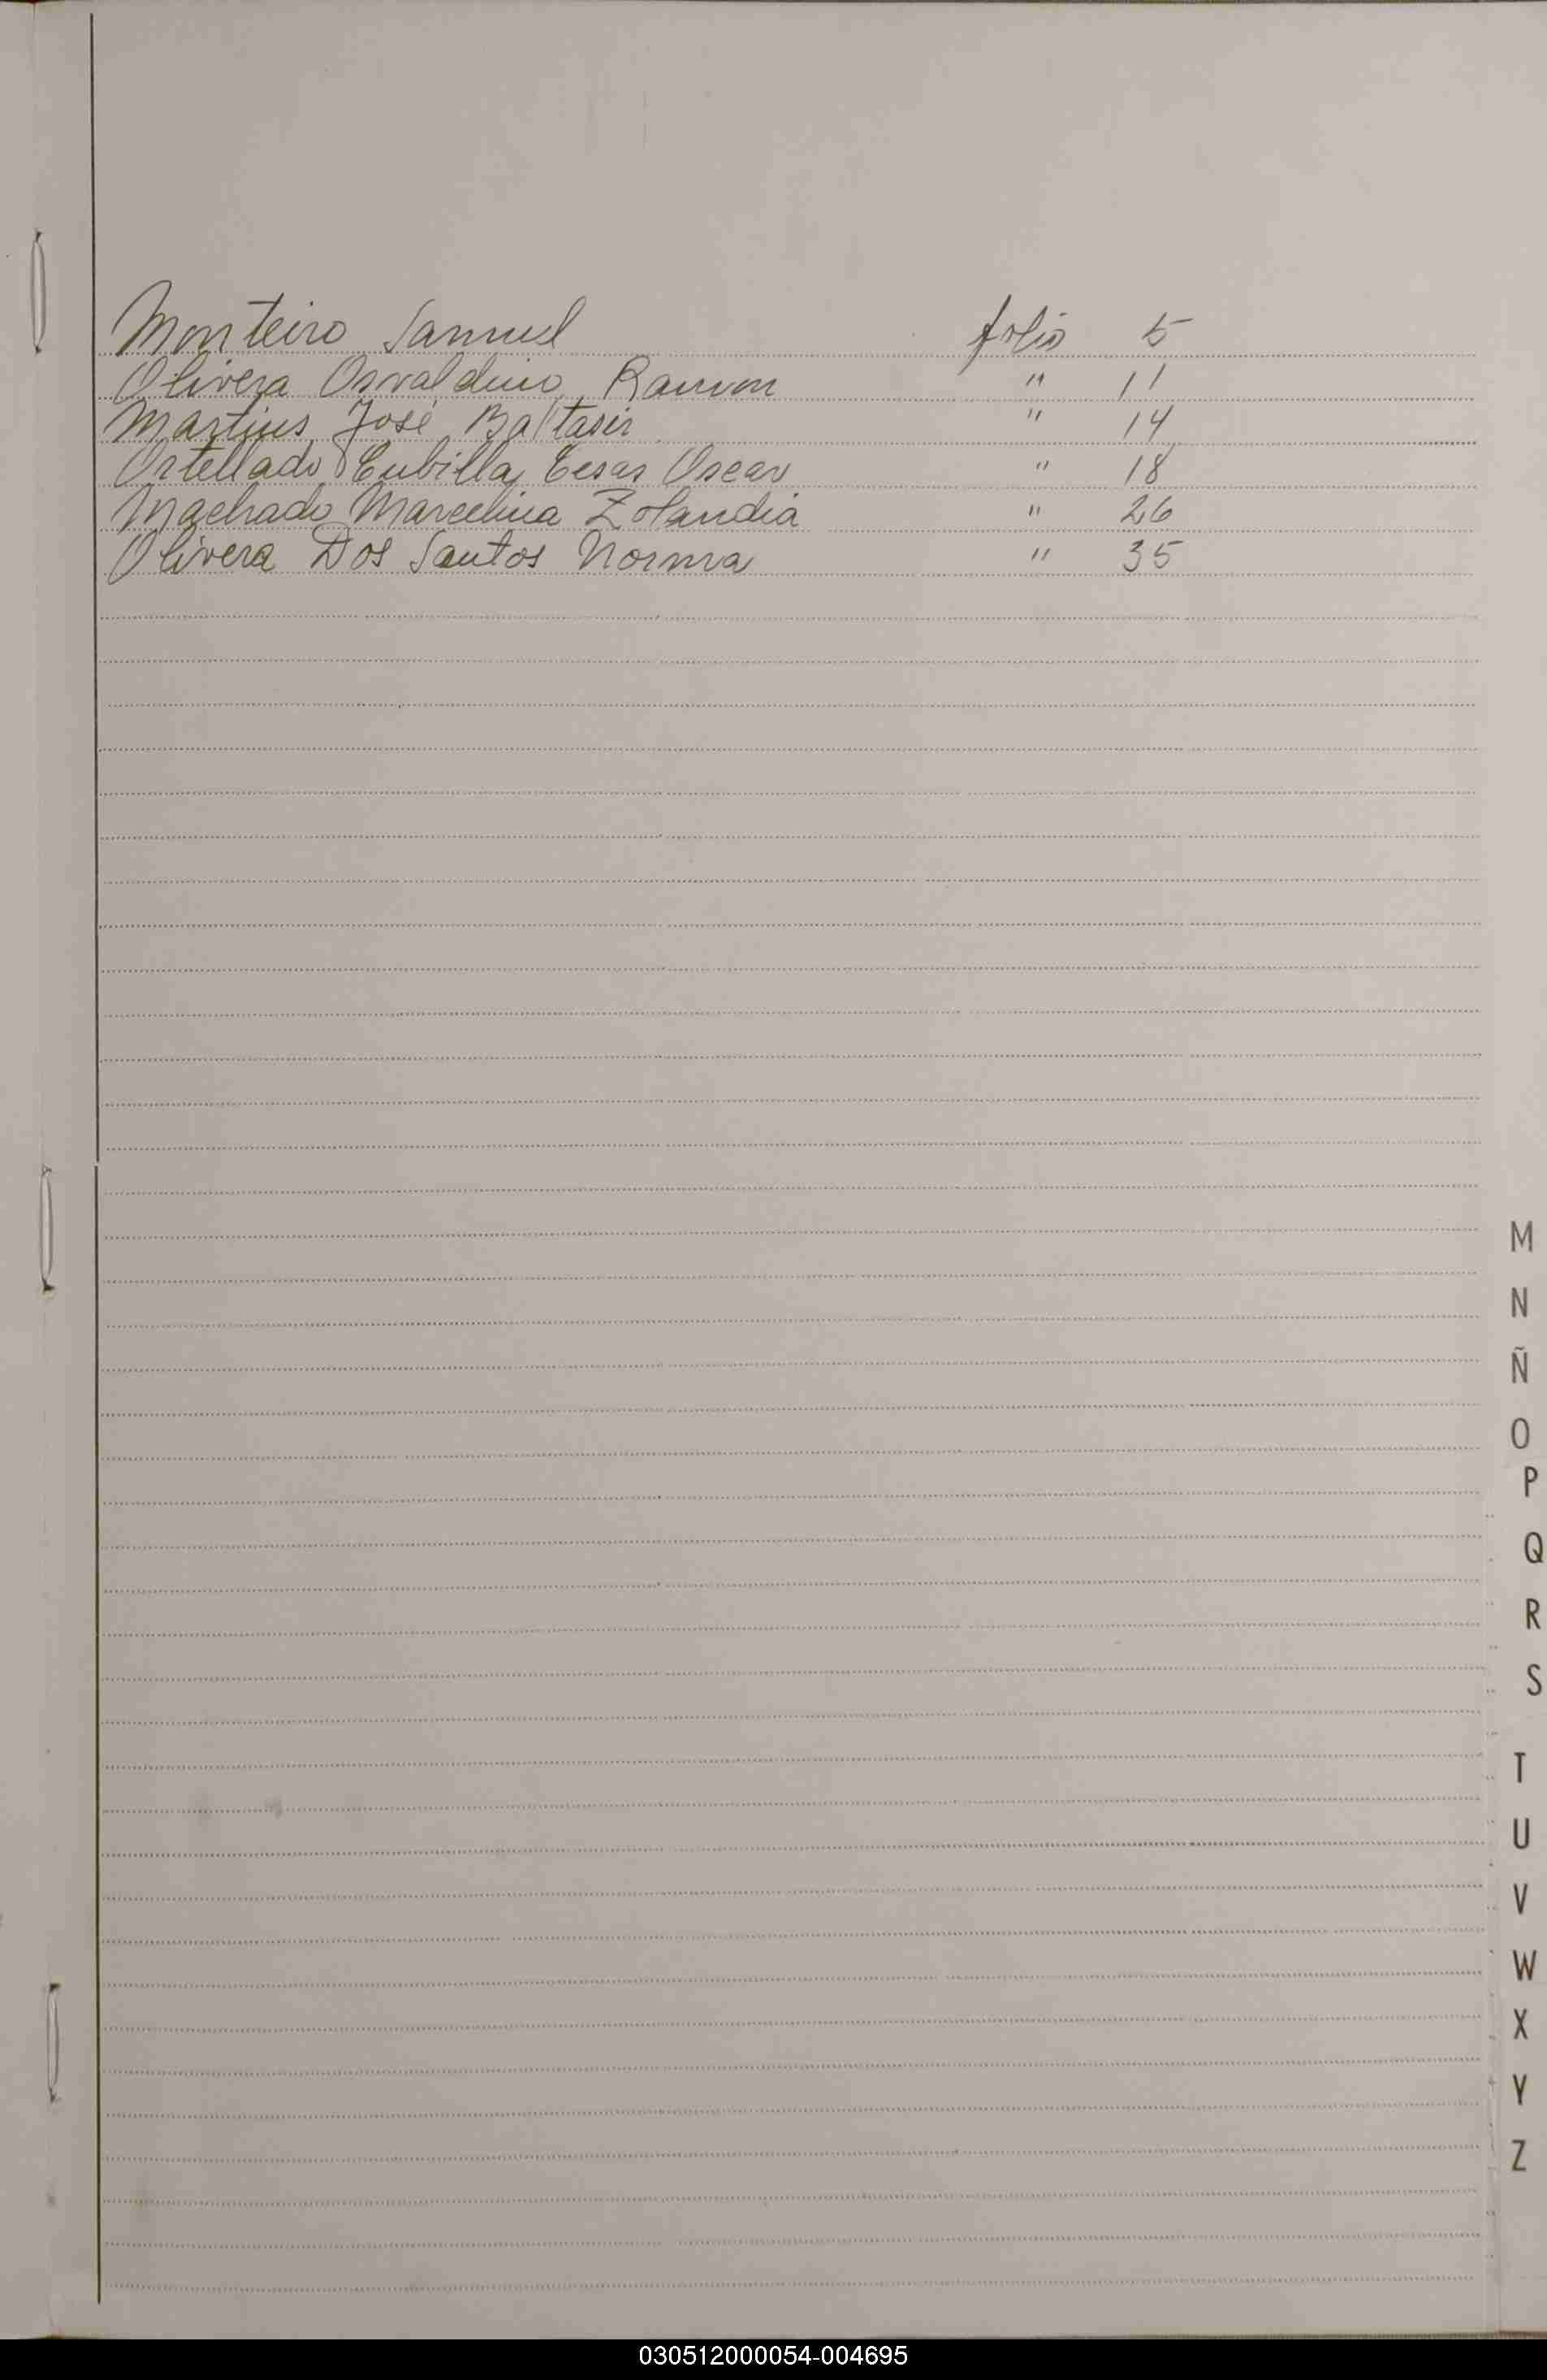 Monteiro Samuel folio 5
Olivera Osvaldino Ramon " 11
Martins José Baltasir " 14
Ortellado Cubilla Cesar Oscar " 18
Machado Marcelina Zolandia " 26
Olivera Dos Santos Norma " 35
M
N
Ñ
O
P
Q
R
S
T
U
V
W
X
Y
Z
030512000054-004695